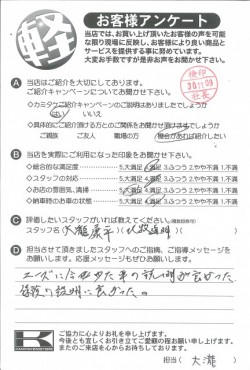 軽
お客様アンケート
当店では、お買い上げ頂いたお客様の声を可能
な限り現場に反映し、お客様により良い商品と
サービスを提供する事に努めています。
大変お手数ですが是非お声をお聞かせ下さい。
検印
30.11.09
社長
A 当店はご紹介を大切にしております。
ご紹介キャンペーンについてお聞かせ下さい。
◇カミタケご紹介キャンペーンのご説明はありましたでしょうか
はい いいえ
◇具体的にご紹介頂ける方とのご関係をお聞かせ頂けますでしょうか
ご親族 ご友人 職場の方 機会があれば紹介したい
B 当店を実際にご利用になった印象をお聞かせ下さい。
◇総合的な満足度 5.大満足 4.満足 3.ふつう 2.やや不満 1.不満
◇スタッフの対応 5.大満足 4.満足 3.ふつう 2.やや不満 1.不満
◇お店の雰囲気、清掃 5.大満足 4.満足 3.ふつう 2.やや不満 1.不満
◇納車時のお車の状態 5.大満足 4.満足 3.ふつう 2.やや不満 1.不満
C 評価したいスタッフがいれば教えてください。(複数回答可)
スタッフ名
D 担当させて頂きましたスタッフへのご指摘、ご指導メッセージを
お願いします。応援メッセージもぜひお願いします。
ニーズに合わせた車の説明が良かった
説明に良かった。
K
ご協力に心よりお礼を申し上げます。
今後とも宜しくお引き立てご愛顧の程お願い申し上げます。
またのご来店を心からお待ちしております。
担当( 大瀧 )